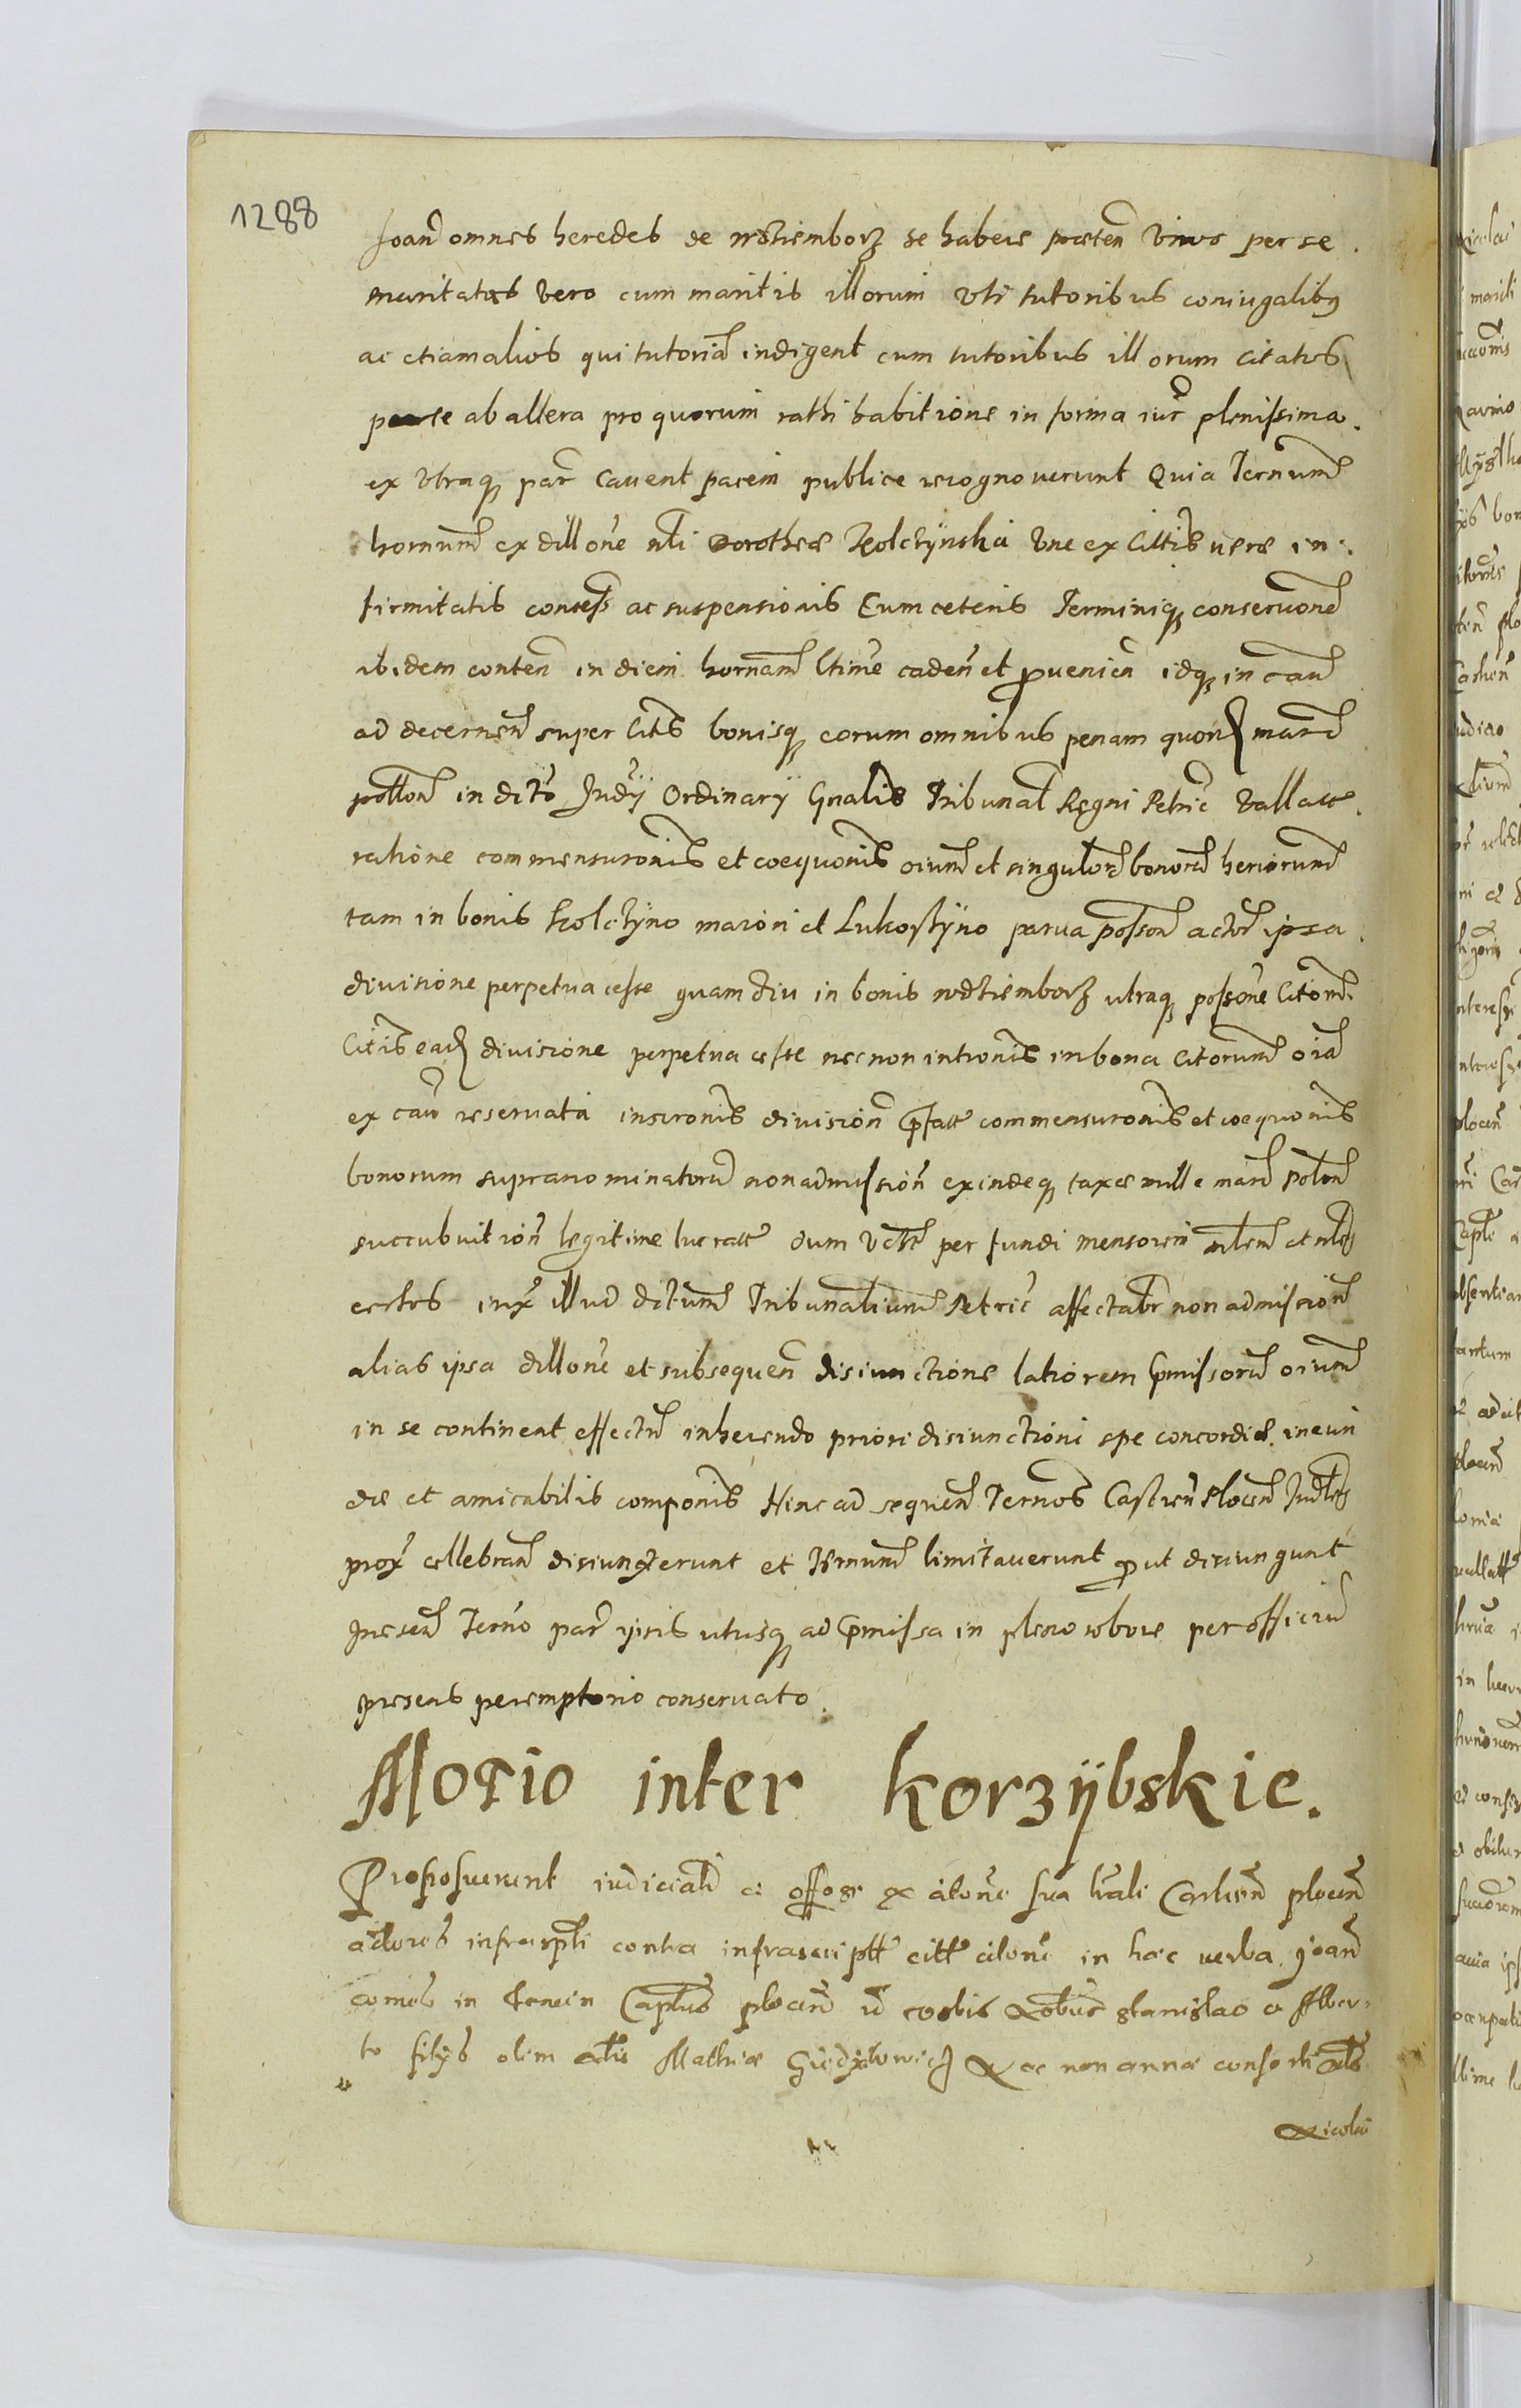 1288
Joan̄ omnes heredes de se habere preten̄ viros per se.
maritatas vero cum maritis illorum uti tutoribus coniugalibus
ac etiam alios qui tutoria indigent cum tutoribus illorum citatos
parte ab altera pro quorum rathi habitione in forma iur plenissima.
ex utraq par cavent parem publice recognoverunt Quia Ternum
hornum ex dillone nli Dorotheæ Kolczÿnska une ex Cittis veræ in-
firmitatis concess ac suspensionis Cum ceteris Terminiq conservone
ibidem conten in diem hornam ltime caden et provenien idq in cau
ad decernen super Citis bonisq eorum omnibus penam quon mar
pollon in dito Judÿ Ordinarÿ Gnalis Tribunal Regni Petric vallatæ.
ratione commensuronis et coequonis oium et singulor bonor heriorum
tam in bonis Kolczÿno maiori et Lukoszÿno parva posson actor ipsa
divisione perpetua cesse quam diu in bonis utraq possone Citor
Citis ead divisione perpetua cesse nec non intronis in bona Citorum oia
ex cau reservata inscronis division pfatæ commensuronis et coequonis
bonorum supranominatoru non admission exindeq taxæ mille mar Polon
succubuition legitime lucratæ dum per fundi mensorem et
certos iux illud ditum Tribunalium Petric affectabr non admission
alias ipsa dillone et subsequen disiunctione latiorem pmissoru oium
in se contineat effectu inherendo priori disiunctioni spe concordiæ ineun
dæ et amicabilis componis Hinc ad sequen Ternos Castren Plocen Judles
prox cellebran disiunxerunt et Ternum limitaverunt prout disiungunt
presen Terno par ipsis utrisq ad pmissa in pleno robore per officiu
presens peremptorio conservato.
Motio inter Korzÿbskie.
Proposuerunt iudicialr c offose ex citone sua lrali Castren plocen
actores infrascpti contra infrascriptt citt citone in hæc verba Joan
comes in Tenczin Captus plocen Nobibus Stanislao et Alber-
to filÿs olim Mathiæ nec non annæ consorti
Nicolai